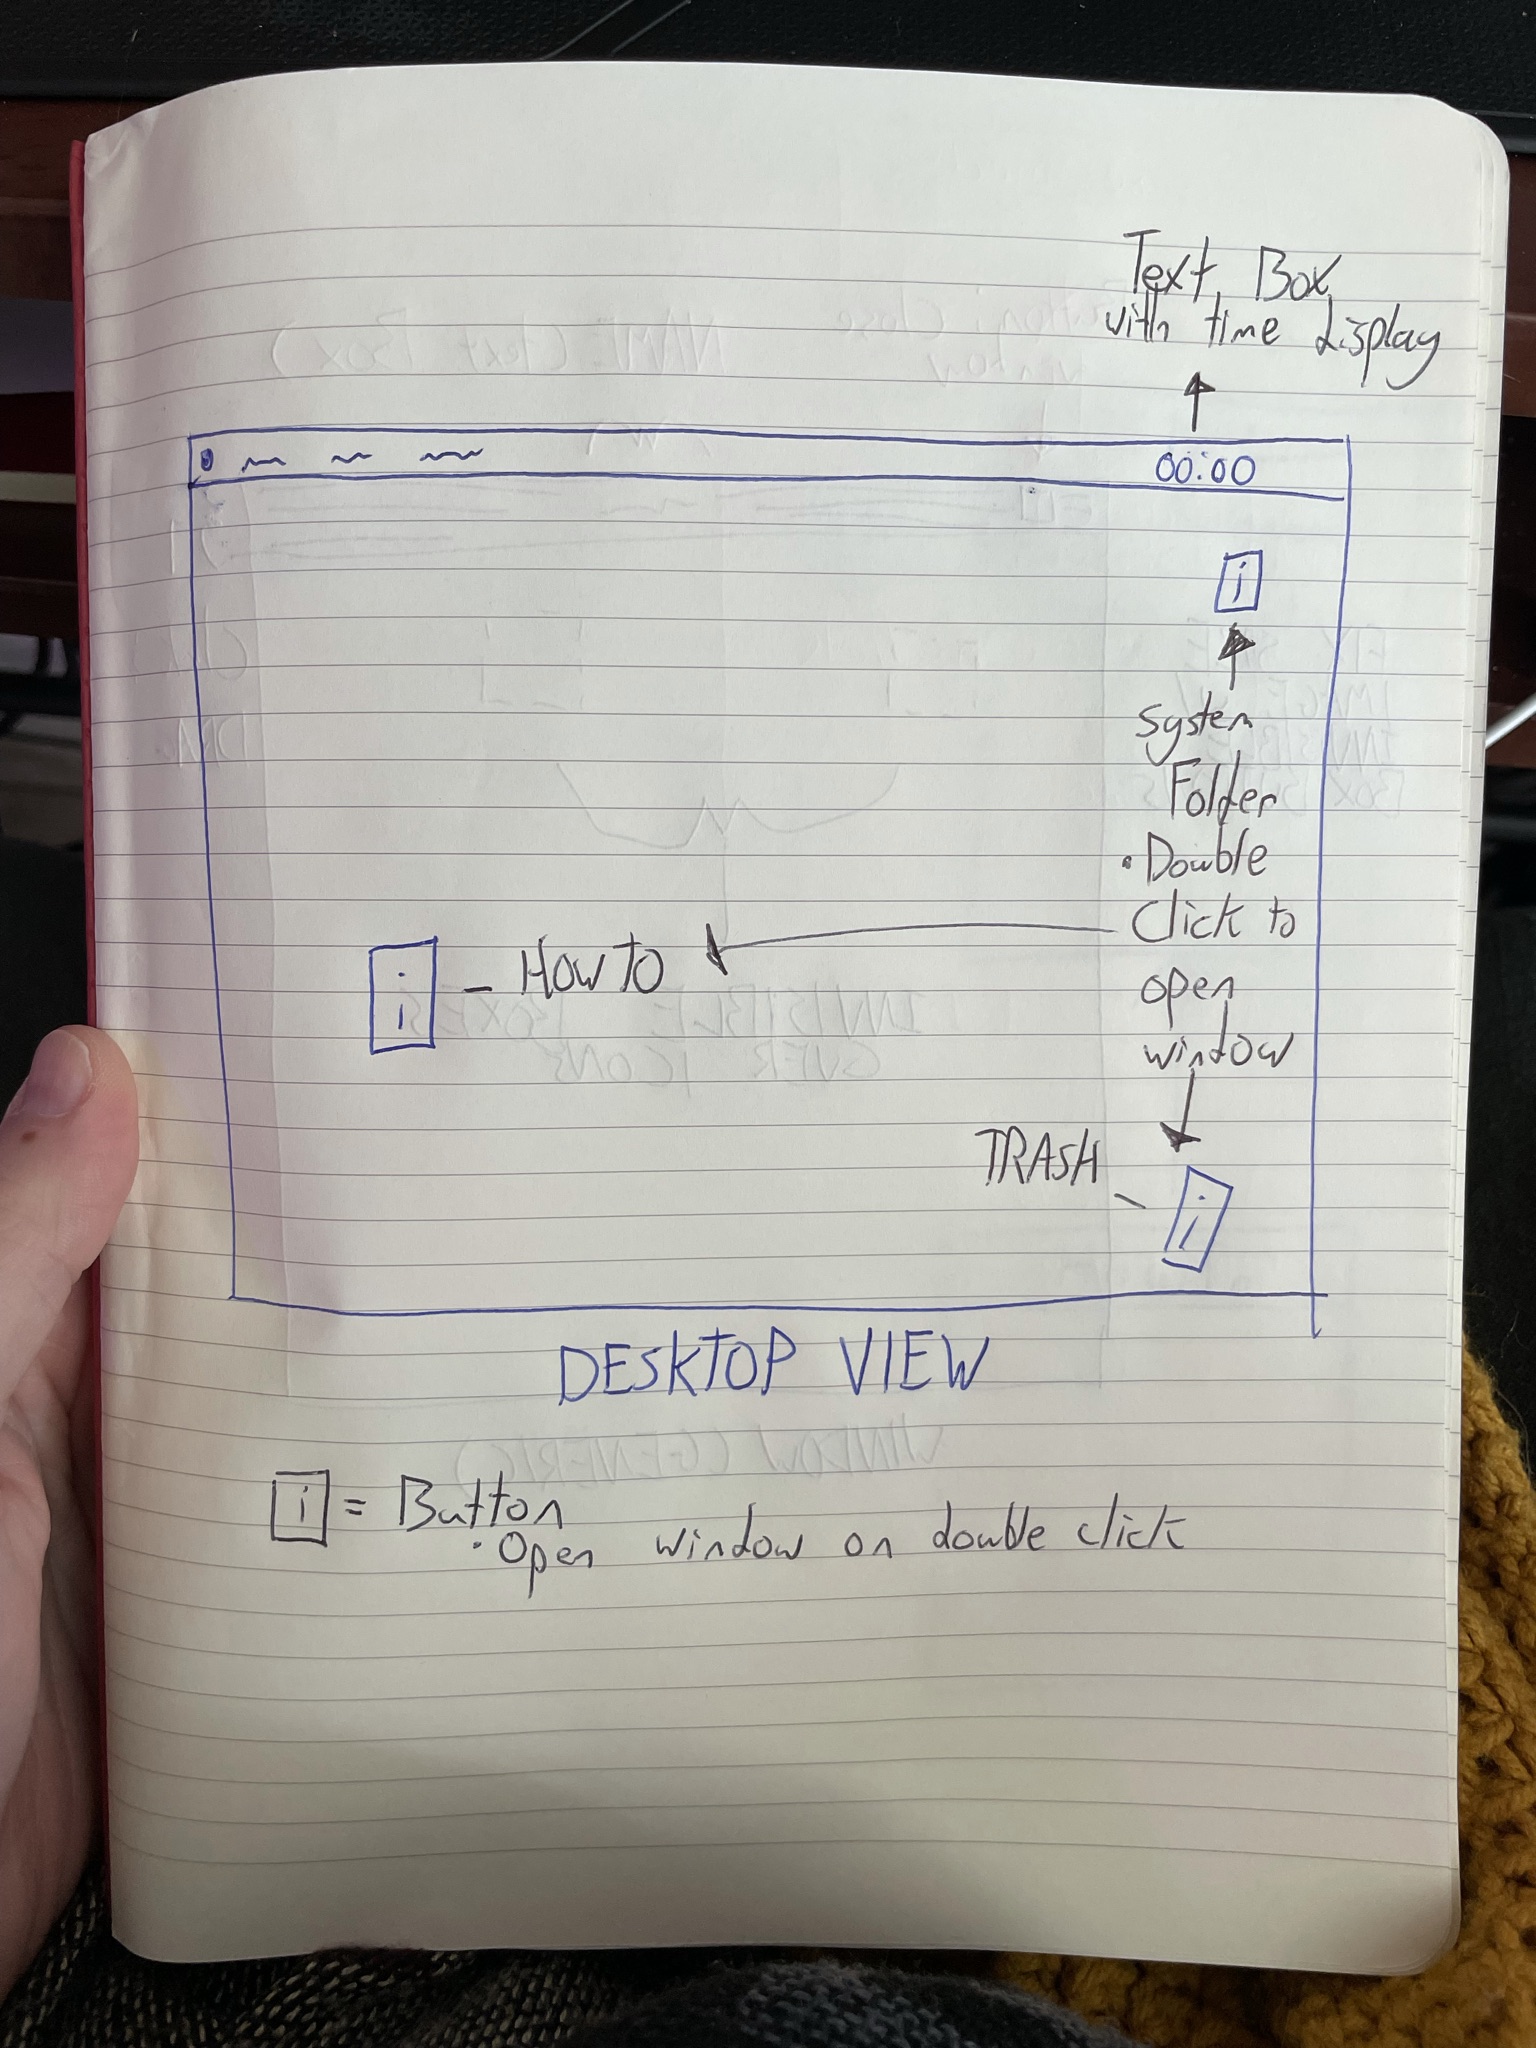 Text Box
with time display
00:00
i
System
Folder
• Double
Click to
open
window
i - HOW TO
TRASH -
i
DESKTOP VIEW
i = Button
• Open window on double click